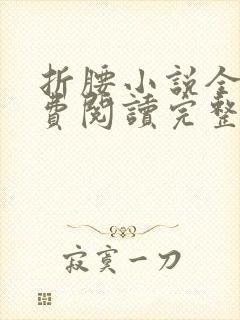 折腰小说全
費閱讀完整
寂寞一刀